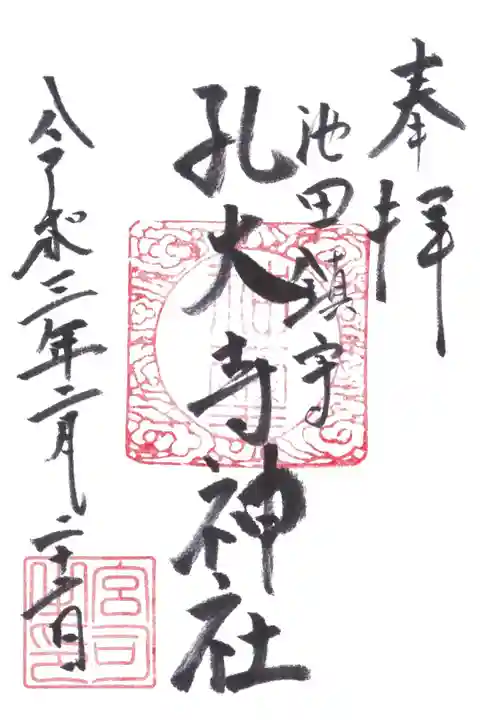 奉拝
池田鎮守
孔大寺神社
令和三年二月二十二日
宮司